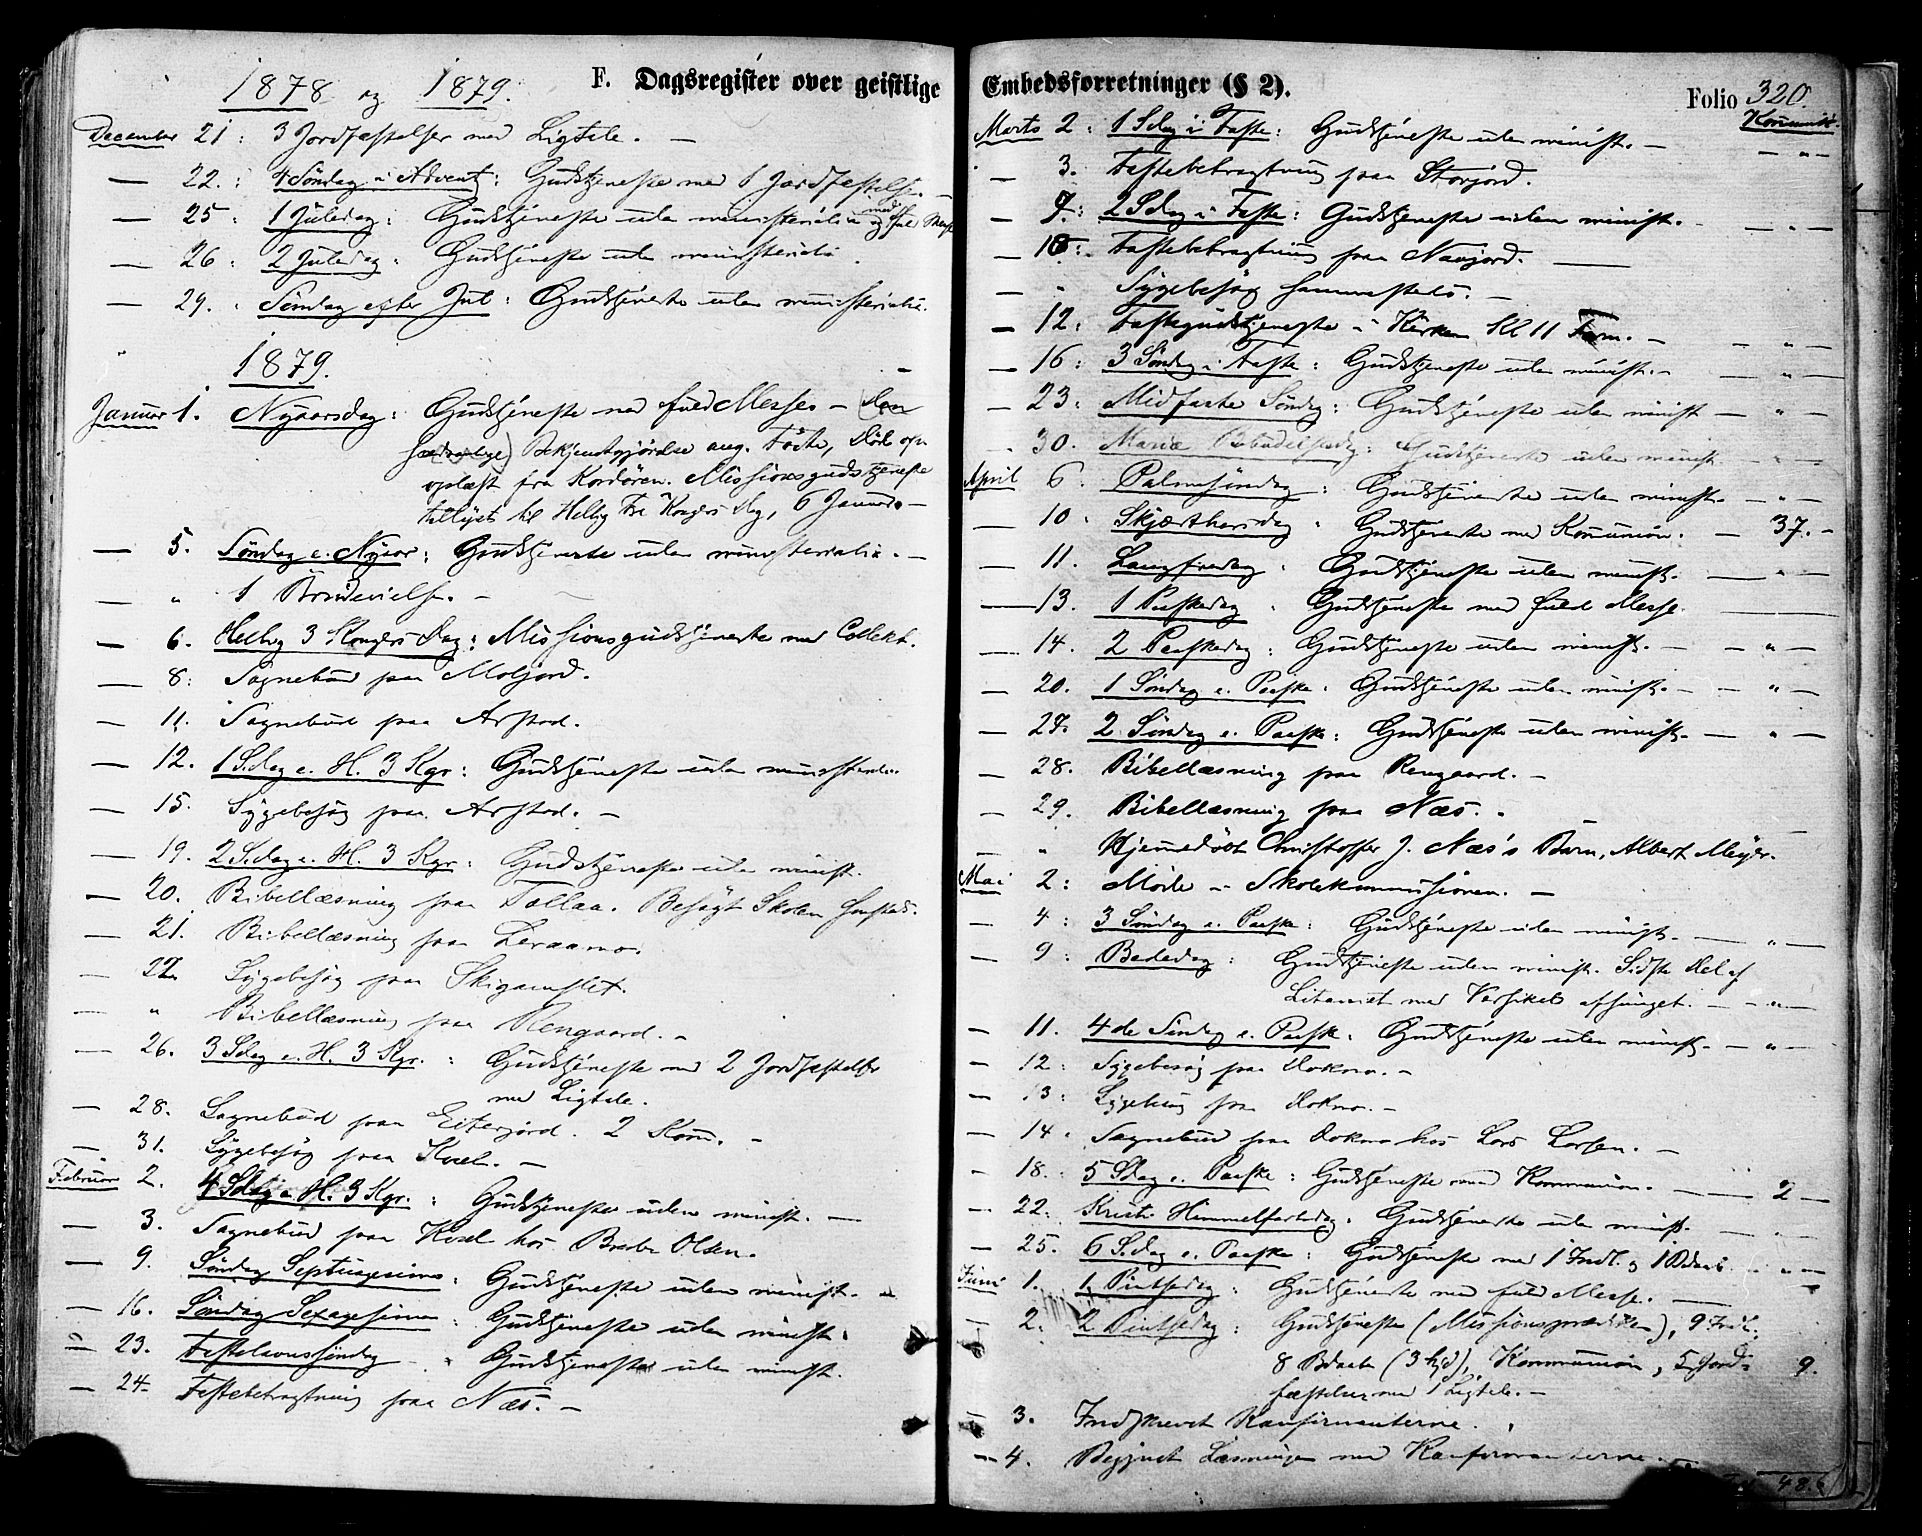 1878 og 1879.
F. Dagsregister over geistlige
December 21: 3 Jordfæstelser med Ligtale. —
— 22.: 4 Søndag i Advent: Gudstjeneste med 1 Jordfæstelse. —
— 25: 1 Juledag: Gudstjeneste uden ministerialia med og fuld Messe
— 26: 2 Juledag: Gudstjeneste uden ministerialia.
— 29.: Søndag efter Jul: Gudstjeneste uden ministerialia.
1879.
Januar 1. Nyaarsdag: Gudstjeneste med fuld Messe — Den
sædvanlige) Bekjentgjørelse ang. Fødte, Døde opl
oplæst fra Kordøren. Missionsgudstjeneste
tillyst til Hellig Tre Kongers Dag, 6 Januar —
— 5. Søndag e. Nyaar: Gudstjeneste uden ministerialia. —
— " 1 Brudevielse. —
— 6. Hellig 3 Kongers Dag: Missionsgudstjeneste med Collekt.
— 8: Sognebud paa Moljord.
— 11. Sognebud paa Arstad.
— 12. 1 S.dag e. H. 3 Kgr: Gudstjeneste uden ministerialia
— 15. Sygebesøg paa Arstad. —
— 19. 2 S.dag e. H. 3 Kgr: Gudstjeneste uden minist.
— 20. Bibellæsning paa Tollaa. Besøgt Skolen
— 21. Bibellæsning paa Leraamo.
— 22 Sygebesøg paa Skigamslet.
— " Bibellæsning paa Rengaard. —
— 26. 3 Sdag e. H. 3 Kgr.: Gudstjeneste med 2 Jordfæstelser
med Ligtale.
— 28. Sognebud paa Eiterjord. 2 Kom. —
— 31. Sygebesøg paa Kvæl. —
Februar 2. 4 Sdag e. H. 3 Kgr.: Gudstjeneste uden minist. —
— 3. Sognebud paa Kvæl hos Olsen.
— 9. Søndag Septuagesima: Gudstjeneste uden minist. —
— 16. Søndag Sexagesima: Gudstjeneste uden minist.
— 23. Fastelavnssøndag Gudstjeneste uden minist.
— 24. Fastebetragtning paa Næs. —
Embedsforretninger (§ 2).
Folio 320.
Kommunik.
Marts 2: 1 Sdag i Faste: Gudstjeneste uden minist. — — " —
" 3. Fastebetragtning paa Storjord.
— 9: 2 Sdag i Faste: Gudstjeneste uden minist. — — " —
— 10: Fastebetragtning paa Navjord. —
— " Sygebesøg sammesteds. —
— 12: Fastegudstjeneste i Kirken Kl 11 Form. —
— 16: 3 Søndag i Faste: Gudstjeneste uden minist. — — " —
— 23: Midfaste Søndag: Gudstjeneste uden minist — " —
— 30. Mariæ Bebudelsesdag: Gudstjeneste uden minist — " —
April 6: Palmesøndag: Gudstjeneste uden minist. — " —
— 10: Skjærthorsdag: Gudstjeneste med Kommunion. — 37. —
— 11. Langfredag: Gudstjeneste uden minist. — " —
— 13. 1 Paaskedag: Gudstjeneste med fuld Messe. —
— 14. 2 Paaskedag: Gudstjeneste uden minist. — — " —
— 20. 1 Søndag e. Paaske: Gudstjeneste uden minist. — — " —
— 27. 2 Søndag e. Paaske: Gudstjeneste uden minist. — — " —
— 28. Bibellæsning paa Rengaard. —
— 29. Bibellæsning paa Næs. —
— " Hjemmedøbt Christoffer J. Næs's Barn, Albert Meyer.
Mai 2: Møde i Skolekommissionen. —
— 4: 3 Søndag e. Paaske: Gudstjeneste uden minist. — — " —
— 9: Bededag: Gudstjeneste uden minist. Sidste Del af
Litaniet med Versikel afsunget. — — " —
— 11. 4de Søndag e. Paaske: Gudstjeneste uden minist. — " —
— 12: Sygebesøg paa Dokmo. —
— 13: Sygebesøg paa Dokmo. —
— 14. Sognebud paa Dokmo hos Lars Larsen. —
— 18. 5 Sdag e. Paaske: Gudstjeneste med Kommunion. — — 2 —
— 22. Kristi Himmelfartsdag: Gudstjeneste uden minist. — " —
— 25. 6 S.dag e. Paaske: Gudstjeneste med 1 Indl. og 1 Bdaab. — " —
Juni 1. 1. Pintsedag: Gudstjeneste med fuld Messe. —
— 2. 2 Pintsedag: Gudstjeneste (Missionsprædiken), 9 Indl.
8 Bdaab (3 hjd), Kommunion, 5 Jord- 9.
fæstelser med 1 Ligtale. —
— 3. Indskrevet Konfirmanterne.
— 4. Begyndt Læsningen med Konfirmanterne.
48.